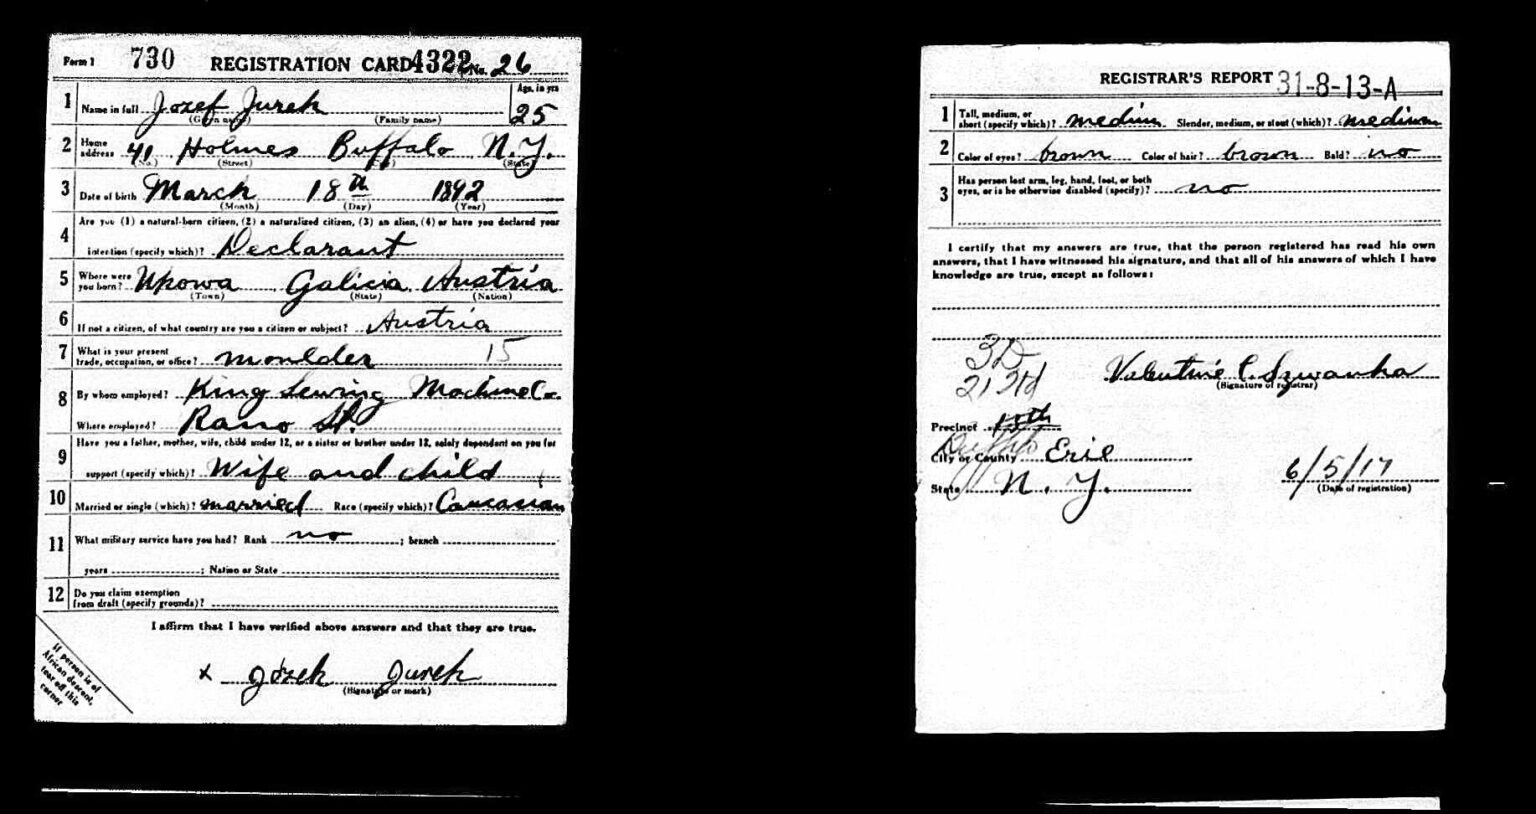 Form 1 730 REGISTRATION CARD 4322 No. 26
Age, in yrs
1 Name in full Jozef Jurek 25
(Given name) (Family name)
2 Home address 41 Holmes Buffalo N.Y.
(No.) (Street) (City) (State)
3 Date of birth March 18th 1892
(Month) (Day) (Year)
Are you (1) a natural-born citizen, (2) a naturalized citizen, (3) an alien, (4) or have you declared your
4 intention (specify which)? Declarant
5 Where were you born? Galicia Austria
(Town) (State) (Nation)
6 If not a citizen, of what country are you a citizen or subject? Austria
7 What is your present
trade, occupation, or office? moulder 15
8 By whom employed? King Sewing Machine Co.
Where employed? Rano St.
Have you a father, mother, wife, child under 12, or a sister or brother under 12, solely dependent on you for
9 support (specify which)? Wife and child
10 Married or single (which)? married Race (specify which)? Caucasian
11 What military service have you had? Rank no ; branch
years ; Nation or State
12 Do you claim exemption
from draft (specify grounds)?
I affirm that I have verified above answers and that they are true.
x Józek Jurek
(Signature or mark)
If person is of
African descent,
tear off this
corner
REGISTRAR'S REPORT 31-8-13-A
1 Tall, medium, or
short (specify which)? medium Slender, medium, or stout (which)? medium
2 Color of eyes? brown Color of hair? brown Bald? no
3 Has person lost arm, leg, hand, foot, or both
eyes, or is he otherwise disabled (specify)? no
I certify that my answers are true, that the person registered has read his own
answers, that I have witnessed his signature, and that all of his answers of which I have
knowledge are true, except as follows:
3D
Valentine C. Szwanka
21 Wd
(Signature of registrar)
Precinct
Buffalo
City or County Erie
6/5/17
State N. Y.
(Date of registration)